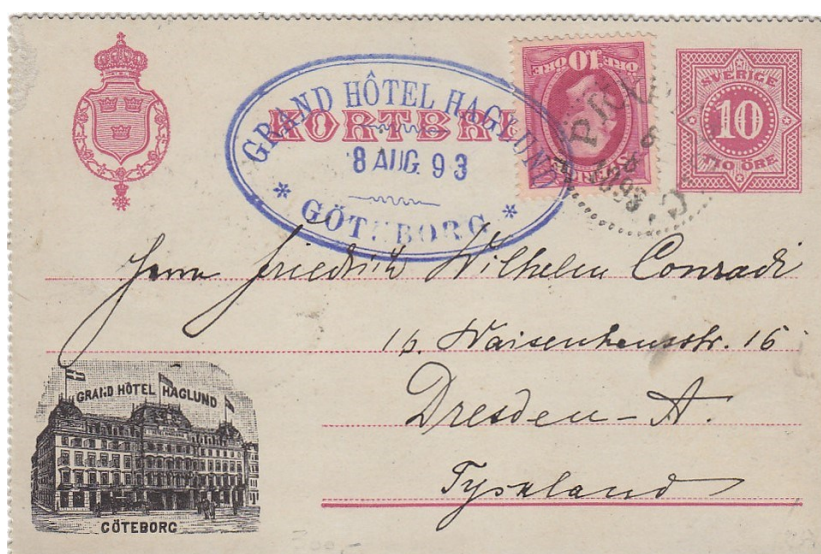 KORTBREF
GRAND HÔTEL HAGLUND
8 AUG. 93
* GÖTEBORG *
10 ÖRE
SVERIGE
10
TIO ÖRE
PKXP
1893
Herrn Friedrich Wilhelm Conradi
16. Waisenhausstr. 16
Dresden-A.
Tyskland
GRAND HÔTEL HAGLUND
GÖTEBORG
300,-